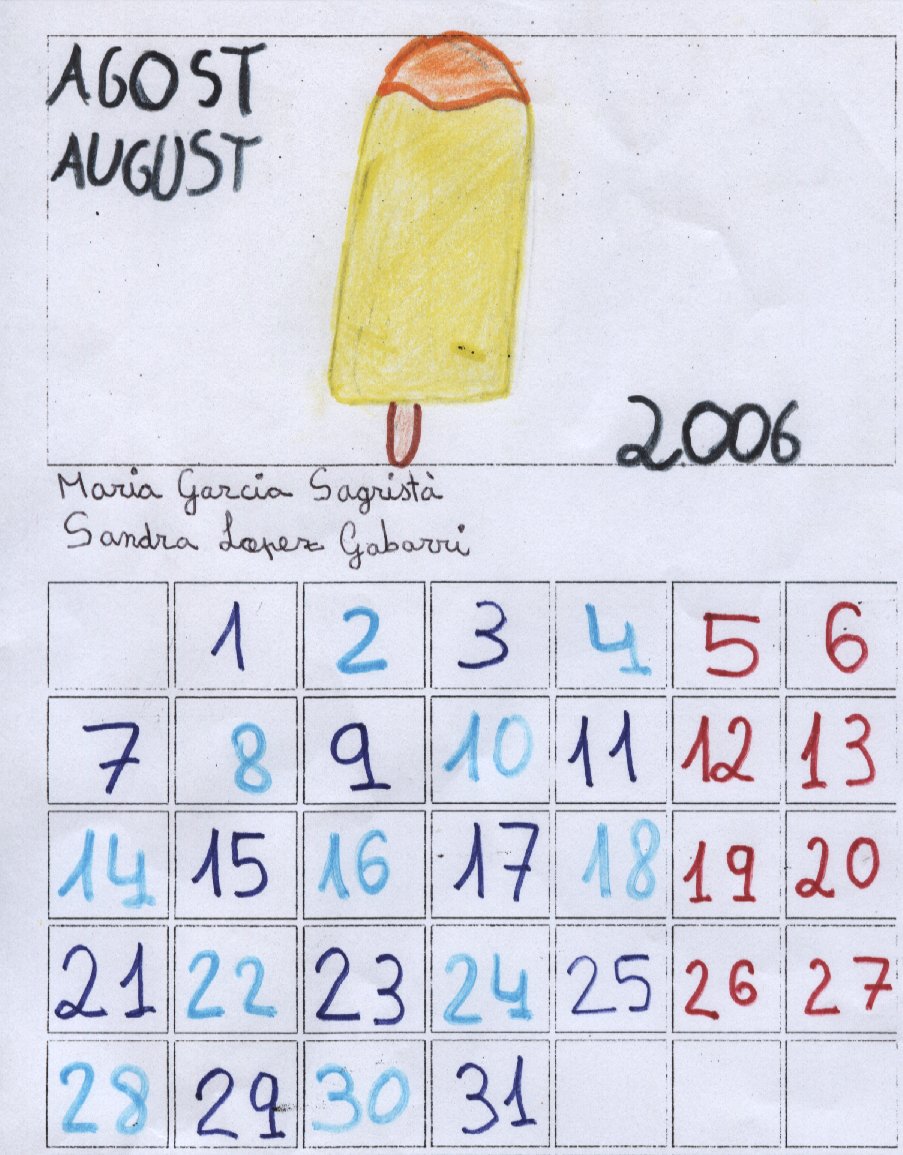 AGOST
AUGUST
2006
Maria Garcia Sagristà
Sandra Lopez Gabarri
1 2 3 4 5 6
7 8 9 10 11 12 13
14 15 16 17 18 19 20
21 22 23 24 25 26 27
28 29 30 31